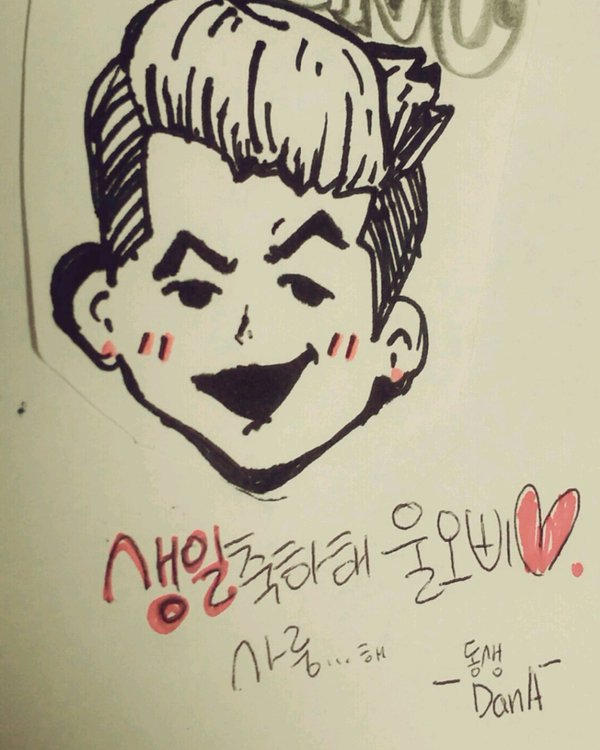 생일축하해 울오빠
사룽...해
-동생-
DanA